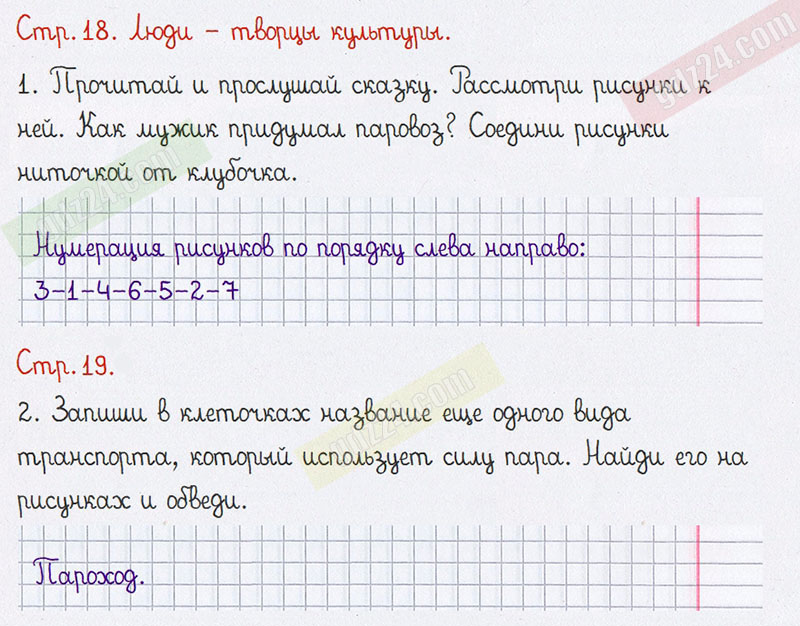 Стр. 18. Люди – творцы культуры.
1. Прочитай и прослушай сказку. Рассмотри рисунки к
ней. Как мужик придумал паровоз? Соедини рисунки
ниточкой от клубочка.
Нумерация рисунков по порядку слева направо:
3-1-4-6-5-2-7
Стр. 19.
2. Запиши в клеточках название еще одного вида
транспорта, который использует силу пара. Найди его на
рисунках и обведи.
Пароход.
gdz24.com
gdz24.com
gdz24.com